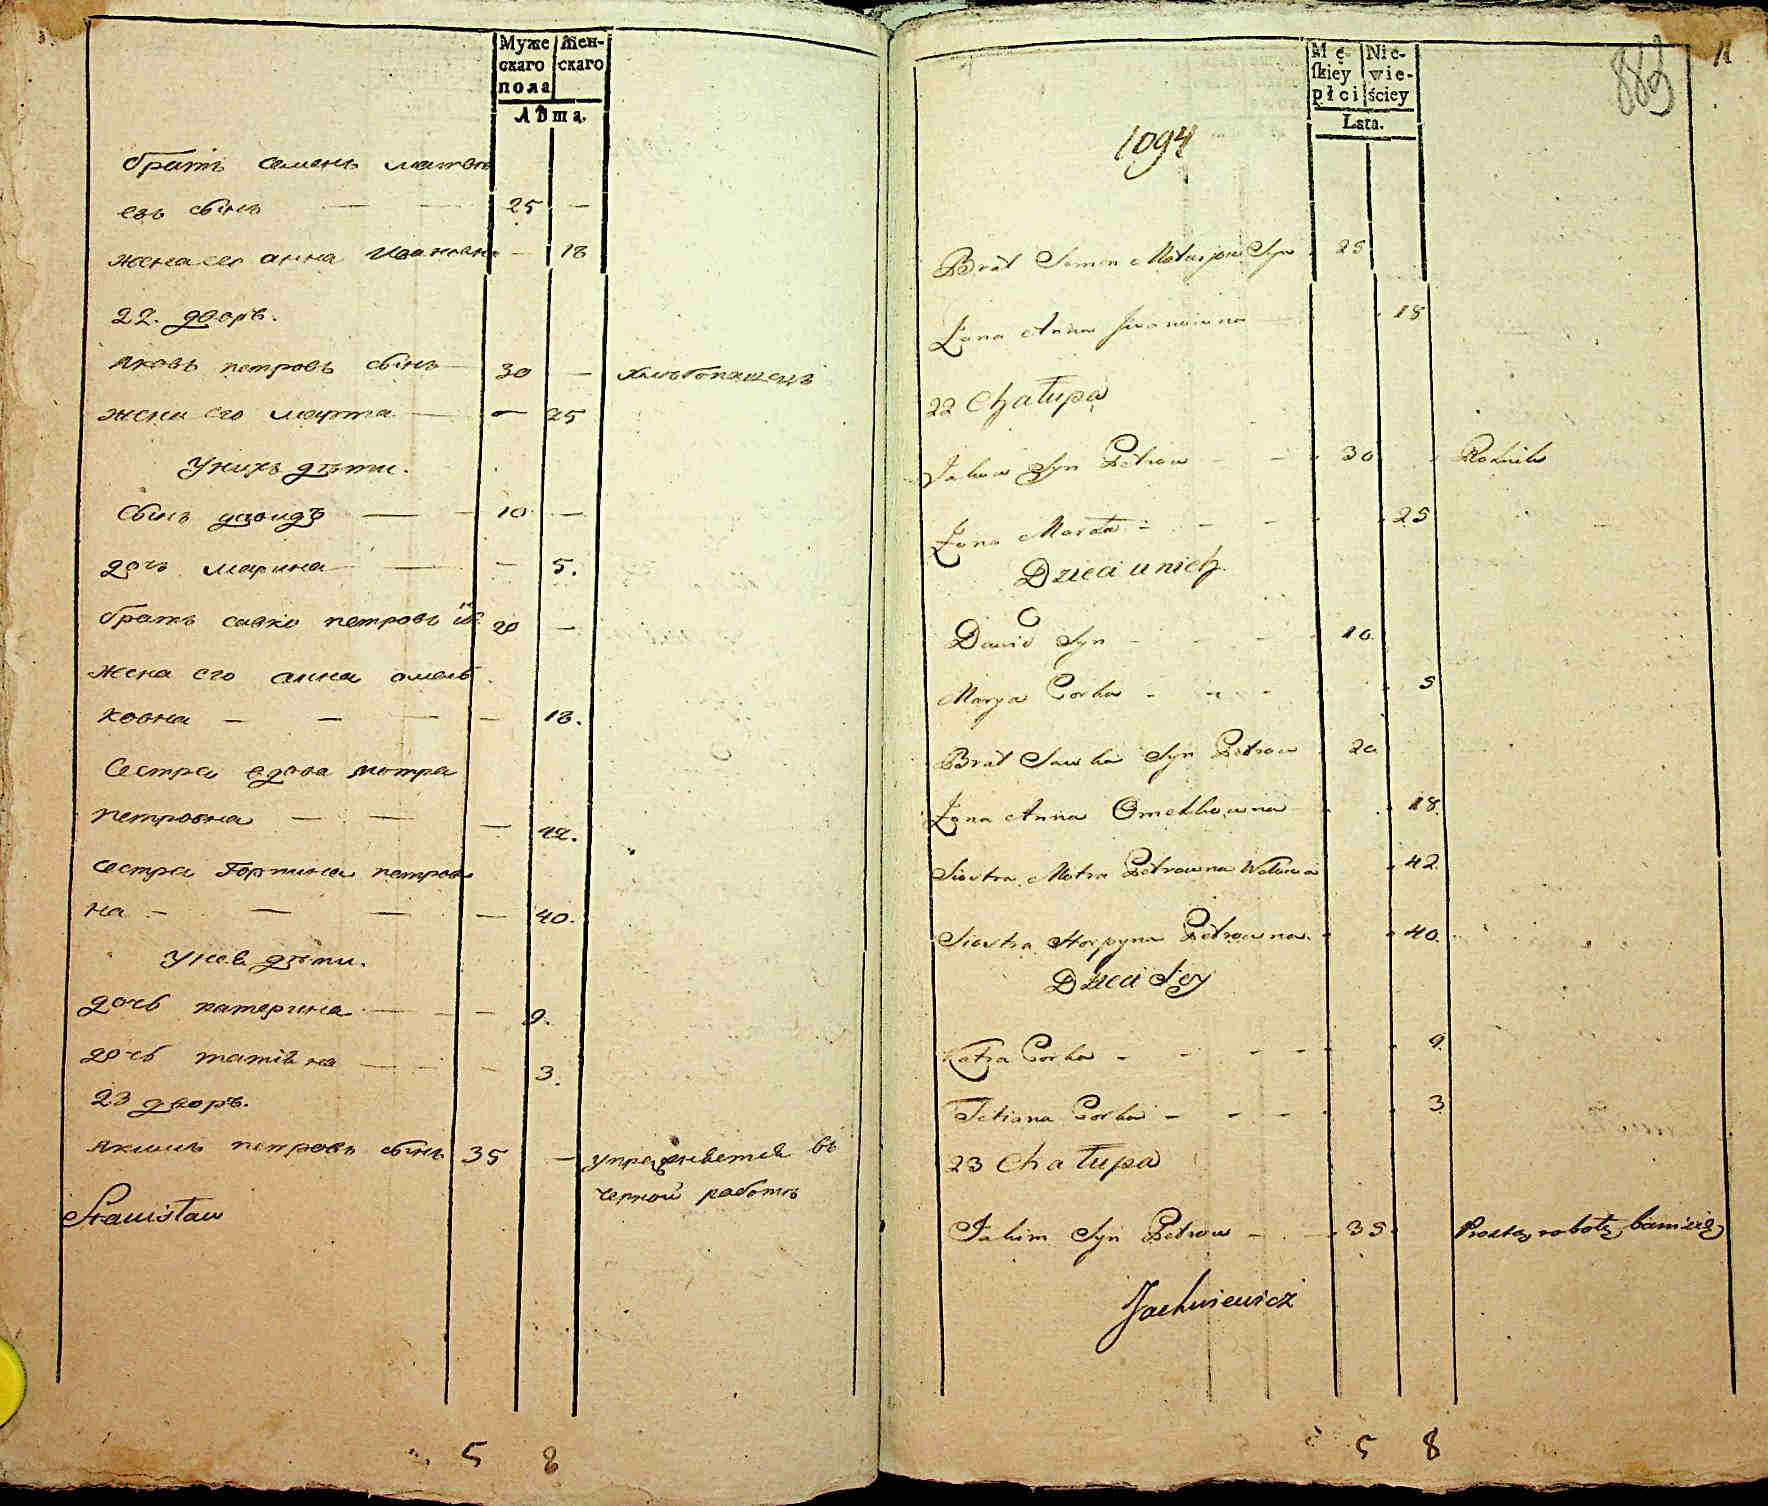 Муже
скаго
пола
Жен-
скаго
Лѣта.
братъ семенъ матвѣ
евъ сынъ — — 25 —
жена его анна Ивановна — 18
22. дворъ.
яковъ петровъ сынъ — 30 — хлѣбопашецъ
жена его марта — — 25
Унихъ дѣти.
сынъ давидъ — — 10 —
дочъ марина — — — 5.
братъ савка петровъ сы: 20 —
жена его анна омель
ковна — — — — 18.
Сестра вдова мотра
петровна — — — 42.
сестра Горпина петров
на — — — — 40.
Унеѣ дѣти.
дочь катерина — — — 9.
дочь татіяна — — — 3.
23 дворъ.
якимъ петровъ сынъ 35 — упражняется въ
черной работѣ
Stanisław
5 8
11
883
Mę-
ſkiey
płci
Nie-
wie-
ściey
Lata.
1094
Brat Semen Matwijow Syn 25
Zona Anna Jwanowna — 18
22 Chałupa
Jakow Syn Petrow — 30 Rolnik
Zona Marta - - - 25
Dzieci u nich
Dawid Syn - - - 10
Marya Corka - - - 5
Brat Sawka Syn Petrow 20
Zona Anna Omelkowna 18.
Siostra Motra Petrowna Wdowa 42.
Siostra Horpyna Petrowna. 40.
Dzieci Jey
Katra Corka - - - - 9.
Tetiana Corka - - - 3
23 Chałupa
Jakim Syn Petrow - - 35. Prostą robotą bawi się
Jachniewicz
5 8